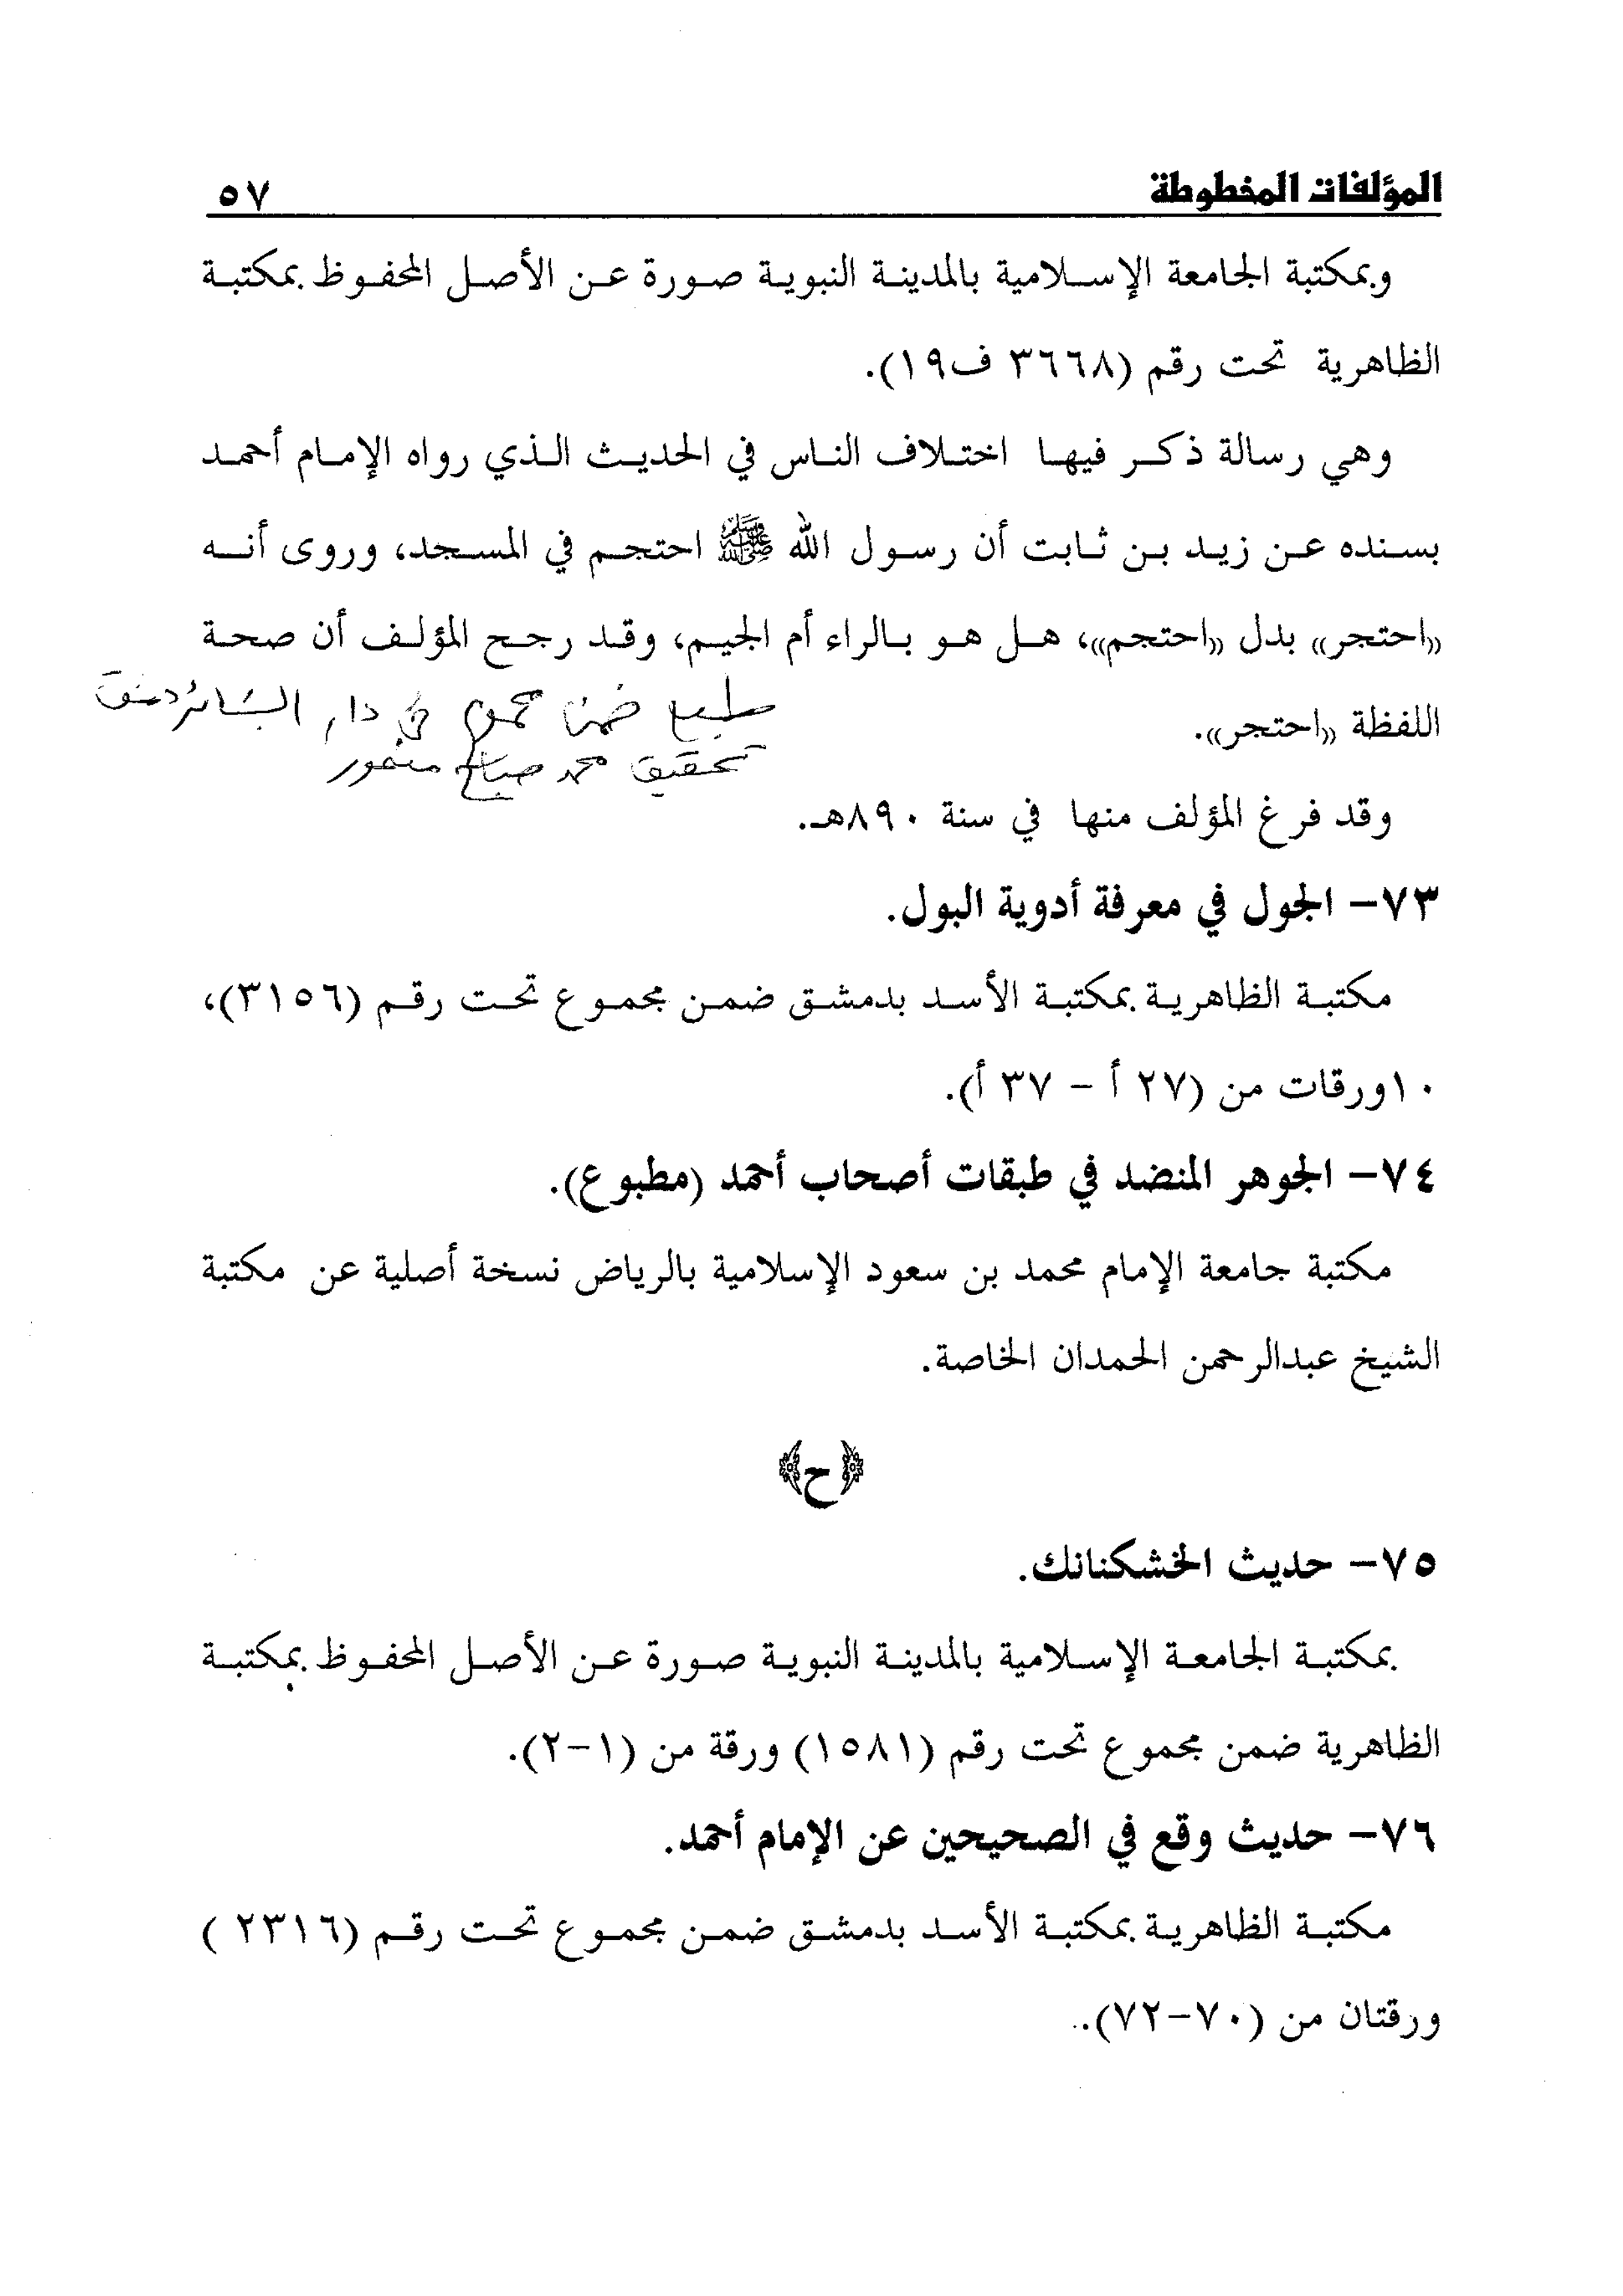 المؤلفات المخطوطة ٥٧
وبمكتبة الجامعة الإسلامية بالمدينة النبوية صورة عن الأصل المحفوظ بمكتبة
الظاهرية تحت رقم (٣٦٦٨ ف١٩).
وهي رسالة ذكر فيها اختلاف الناس في الحديث الذي رواه الإمام أحمد
بسنده عن زيد بن ثابت أن رسول الله ﷺ احتجم في المسجد، وروى أنه
«احتجر» بدل «احتجم»، هل هو بالراء أم الجيم، وقد رجح المؤلف أن صحة
اللفظة «احتجر».
طبع ضمن مجموع في دار البشائر دمشق
تحقيق محمد صباح منصور
وقد فرغ المؤلف منها في سنة ٨٩٠هـ.
٧٣- الجول في معرفة أدوية البول.
مكتبة الظاهرية بمكتبة الأسد بدمشق ضمن مجموع تحت رقم (٣١٥٦)،
١٠ورقات من (٢٧ أ - ٣٧ أ).
٧٤- الجوهر المنضد في طبقات أصحاب أحمد (مطبوع).
مكتبة جامعة الإمام محمد بن سعود الإسلامية بالرياض نسخة أصلية عن مكتبة
الشيخ عبدالرحمن الحمدان الخاصة.
﴿ح﴾
٧٥- حديث الخشكنانك.
بمكتبة الجامعة الإسلامية بالمدينة النبوية صورة عن الأصل المحفوظ بمكتبة
الظاهرية ضمن مجموع تحت رقم (١٥٨١) ورقة من (١-٢).
٧٦- حديث وقع في الصحيحين عن الإمام أحمد.
مكتبة الظاهرية بمكتبة الأسد بدمشق ضمن مجموع تحت رقم (٢٣١٦ )
ورقتان من (٧٠-٧٢)..